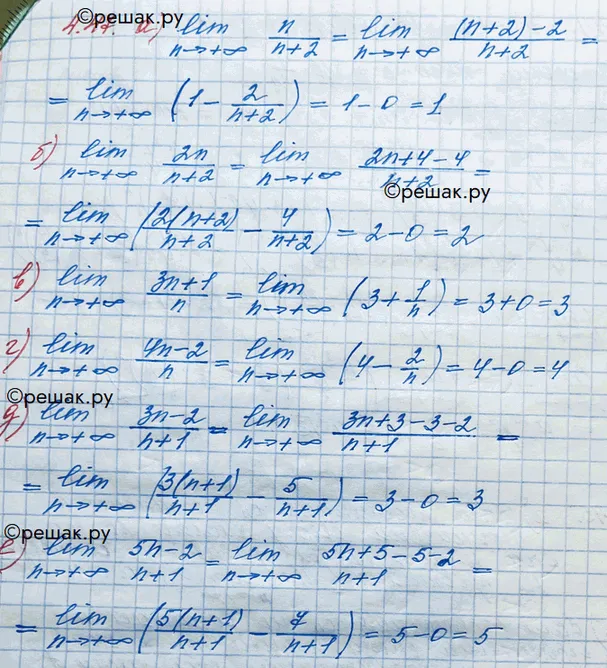 ©решак.ру
4.47. а) lim n→+∞ n/(n+2) = lim n→+∞ ((n+2)-2)/(n+2) =
= lim n→+∞ (1 - 2/(n+2)) = 1-0 = 1
б) lim n→+∞ 2n/(n+2) = lim n→+∞ (2n+4-4)/(n+2) =
©решак.ру
= lim n→+∞ (2(n+2)/(n+2) - 4/(n+2)) = 2-0 = 2
в) lim n→+∞ (3n+1)/n = lim n→+∞ (3 + 1/n) = 3+0 = 3
г) lim n→+∞ (4n-2)/n = lim n→+∞ (4 - 2/n) = 4-0 = 4
©решак.ру
д) lim n→+∞ (3n-2)/(n+1) = lim n→+∞ (3n+3-3-2)/(n+1) =
= lim n→+∞ (3(n+1)/(n+1) - 5/(n+1)) = 3-0 = 3
©решак.ру
е) lim n→+∞ (5n-2)/(n+1) = lim n→+∞ (5n+5-5-2)/(n+1) =
= lim n→+∞ (5(n+1)/(n+1) - 7/(n+1)) = 5-0 = 5